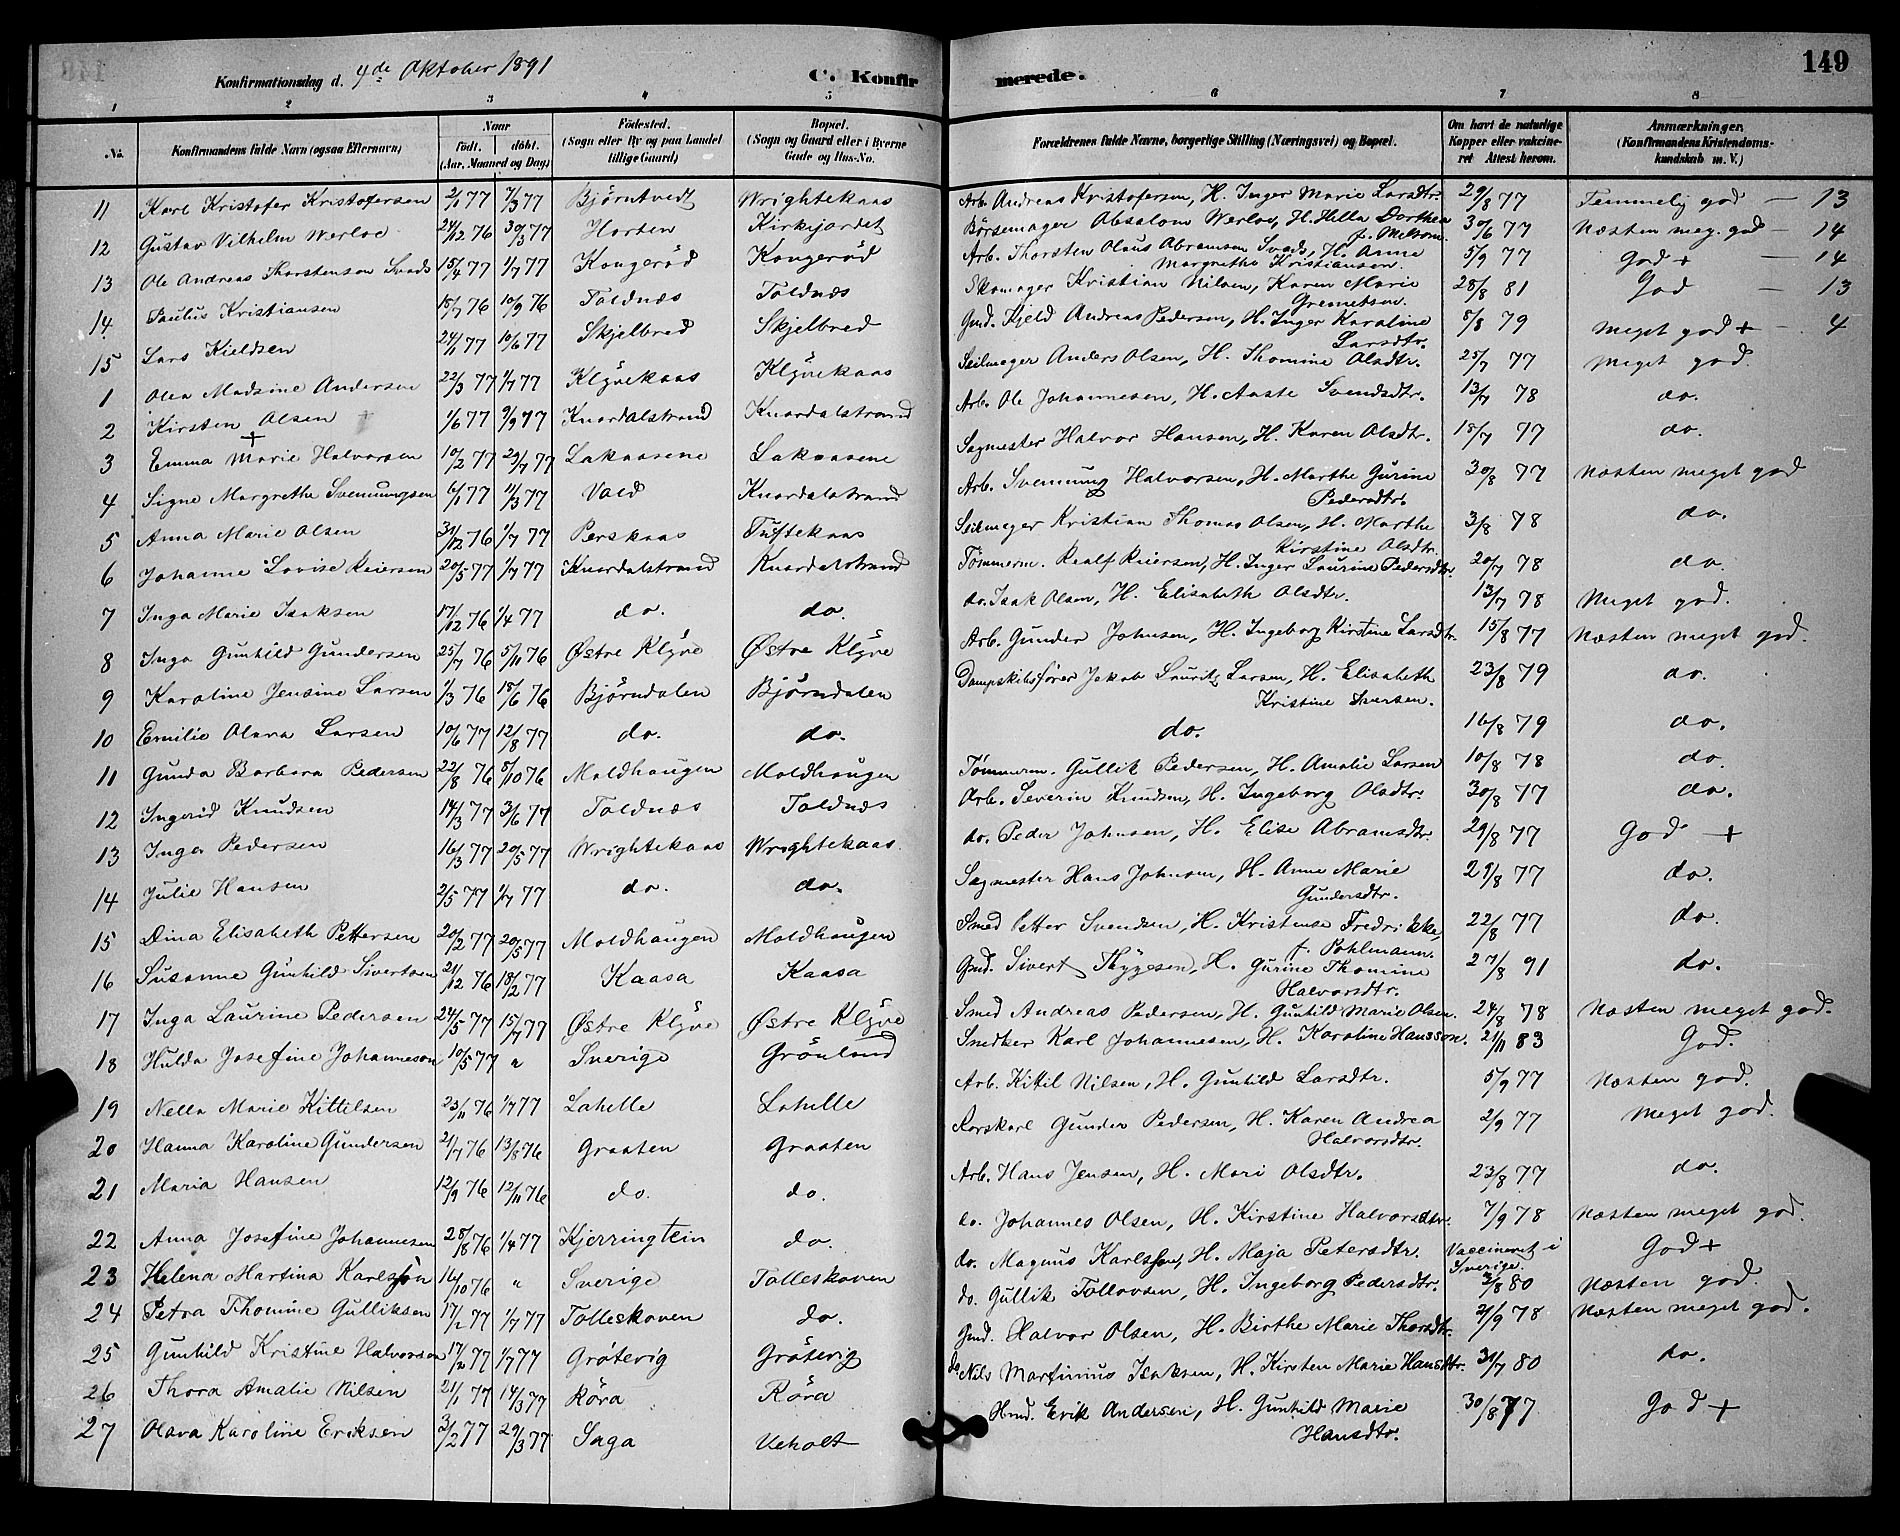 149
Konfirmationsdag d. 4de Oktober 1891 C. Konfirmerede.
1 2 3 4 5 6 7 8
No. Konfirmandens fulde Navn (ogsaa Efternavn) Naar födt. döbt. (Aar, Maaned og Dag) Födested. (Sogn eller By og paa Landet tillige Gaard) Bopæl. (Sogn og Gaard eller i Byerne Gade og Hus-No. Forældrenes fulde Navne, borgerlige Stilling (Næringsvei) og Bopæl. Om havt de naturlige Kopper eller vaccineret Attest herom. Anmærkninger. (Konfirmandens Kristendomskundskab m. V.)
11 Karl Kristofer Kristofersen 2/1 77 7/3 77 Björntvedt Wrightekaas Arb. Andreas Kristofersen, H. Inger Marie Larsdtr. 29/8 77 Temmelig god — 13
12 Gustav Vilhelm Werloe 24/12 76 30/3 77 Horten Kirkjordet Börsemager Absalon Werloe, H. Hella Dorthea f. Melsom. 30/6 77 Næsten meg. god — 14
13 Ole Andreas Thorstensen Svads 15/4 77 1/7 77 Kongeröd Kongeröd Arb. Thorsten Olaus Abramsen Svads, H. Anne Margrethe Kristiansen. 5/9 77 God + — 14
14. Paulus Kristiansen 15/7 76 10/9 76 Toldnæs Toldnæs Skomager Kristian Nilsen, Karen Marie Gremetsen. 28/8 81 God — 13
15 Lars Kieldsen 24/1 77 10/6 77 Skjelbred Skjelbred Gmd. Kjeld Andreas Pedersen, H. Inger Karoline Larsdtr. 5/8 79 Meget god + — 4
1 Olea Madsine Andersen 22/3 77 1/7 77 Klyvekaas Klyvekaas Seilmager Anders Olsen, H. Thomine Olsdtr. 25/7 77 Meget god.
2 Kirsten Olsen 1/6 77 9/9 77 Knardalstrand Knardalstrand Arb. Ole Johannesen, H. Aaste Svendsdtr. 13/7 78 do.
3 Emma Marie Halvorsen 10/2 77 29/7 77 Lakaasene Lakaasene Sagmester Halvor Hansen, H. Karen Olsdtr. 18/7 77 do.
4 Signe Margrethe Svennungsen 6/1 77 11/3 77 Vold Knardalstrand Arb. Svennung Halvorsen, H. Marthe Gurine Pedersdtr. 30/8 77 Næsten meget god
5 Anna Marie Olsen 31/12 76 1/7 77 Perskaas Tuftekaas Seilmager Kristian Thomas Olsen, H. Marthe Kirstine Olsdtr. 3/8 78 do.
6 Johanne Lovise Reiersen 20/5 77 1/7 77 Knardalstrand Knardalstrand Tømmerm. Realf Reiersen, H. Inger Laurine Pedersdtr. 20/7 78 do.
7 Inga Marie Isaksen 17/12 76 1/4 77 do. do. do. Isak Olsen, H. Elisabeth Olsdtr. 13/7 78 Meget god.
8 Inga Gunhild Gundersen 25/7 76 5/11 76 Østre Klyve Østre Klyve Arb. Gunder Johnsen, H. Ingeborg Kirstine Larsdtr. 15/8 77 Næsten meget god.
9 Karoline Jensine Larsen 1/3 76 18/6 76 Björndalen Björndalen Dampskibsfører Jakob Lauritz Larsen, H. Elisabeth Kristine Iversen. 23/8 79 do.
10 Emilie Olava Larsen 10/6 77 12/8 77 do. do. do. 16/8 79 do.
11 Gunda Barbara Pedersen 22/8 76 5/10 76 Moldhaugen Moldhaugen Tømmerm. Gullik Pedersen, H. Amalie Larsen 10/8 78 do.
12 Ingerid Knudsen 14/3 77 3/6 77 Toldnæs Toldnæs Arb. Severin Knudsen, H. Ingeborg Olsdtr. 30/8 77 do.
13 Inga Pedersen 16/3 77 20/5 77 Wrightekaas Wrightekaas. do. Peder Johnsen, H. Elise Abramsdtr. 29/8 77 God +
14 Julie Hansen 2/5 77 1/7 77 do. do. Sagmester Hans Johnsen, H. Anne Marie Gundersdtr. 29/8 77 do.
15 Dina Elisabeth Pettersen 20/2 77 20/5 77 Moldhaugen Moldhaugen Smed Petter Svendsen, H. Kristense Fredrikke, f. Pohlmann. 22/8 77 do.
16 Susanne Gunhild Sivertsen 21/12 76 18/2 77 Kaasa Kaasa Gmd. Sivert Thygesen, H. Gurine Thomine Halvorsdtr. 27/8 91 do.
17 Inga Laurine Pedersen 24/5 77 15/7 77 Østre Klyve Østre Klyve Smed Andreas Pedersen, H. Gunhild Marie Olsen. 24/8 78 Næsten meget god.
18 Hulda Josefine Johannesen 10/5 77 " Sverige Grönland Snedker Karl Johannesen, H. Karoline Hansson. 21/11 83 God.
19 Nella Marie Kittilsen 23/11 76 1/7 77 Lahelle Lahelle Arb. Kittil Nilsen, H. Gunhild Larsdtr. 5/9 77 Næsten god.
20 Hanna Karoline Gundersen 21/7 76 13/8 76 Graaten Graaten Rorskarl Gunder Pedersen, H. Karen Andrea Halvorsdtr. 2/9 77 Meget god.
21 Maria Hansen 12/9 76 12/11 76 do. do. Arb. Hans Jensen, H. Mari Olsdtr. 23/8 77 do.
22 Anna Josefine Johannesen 28/8 76 1/4 77 Kjerringtein do. do. Johannes Olsen, H. Kirstine Halvorsdtr. 7/9 78 Næsten meget god.
23 Helena Martina Karlsson 16/10 76 " Sverige Tolleskoven do. Magnus Karlsson, H. Maja Petersdtr. Vaccineret i Sverige. God +
24 Petra Thomine Gulliksen 17/1 77 1/7 77 Tolleskoven do. do. Gullik Tollovsen, H. Ingeborg Pedersdtr. 3/8 80 Næsten god.
25 Gunhild Kristine Halvorsen 17/2 77 1/7 77 Grötevig Grötevig Gmd. Halvor Olsen, H. Birthe Marie Thorsdtr. 21/9 78 Næsten meget god.
26 Thora Amalie Nilsen 21/1 77 14/3 77 Röra Röra do. Nils Martinius Isaksen, H. Kirsten Marie Hansdtr. 31/7 80 do.
27 Olava Karoline Eriksen 3/2 77 29/3 77 Saga Ueholt Hmd. Erik Andersen, H. Gunhild Marie Hansdtr. 30/8 77 God +